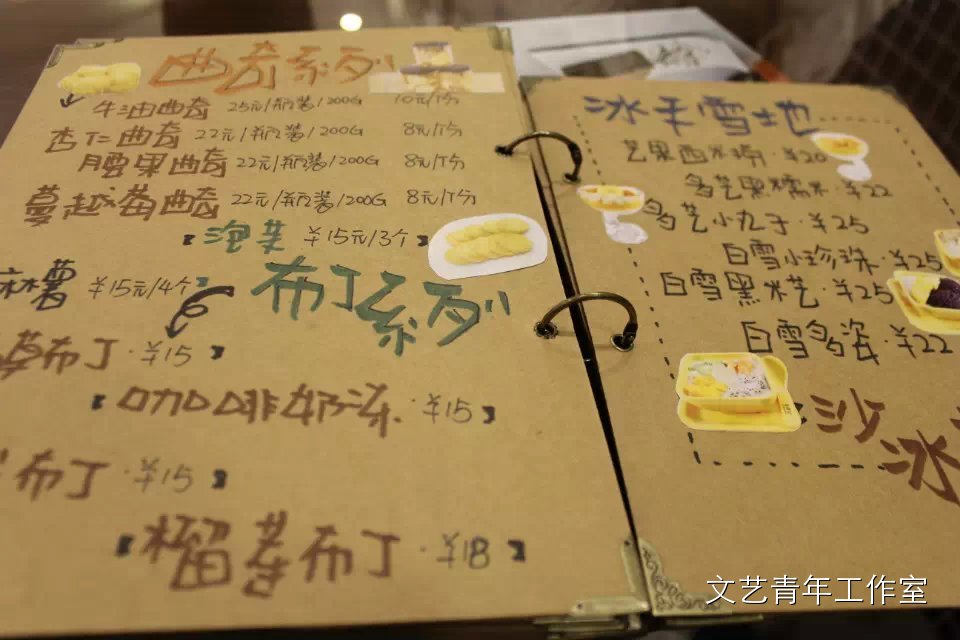 曲奇系列
牛油曲奇 25元/瓶装/200G 10元/个分
杏仁曲奇 22元/瓶装/200G 8元/个分
腰果曲奇 22元/瓶装/200G 8元/个分
蔓越莓曲奇 22元/瓶装/200G 8元/个分
【泡芙 ¥15元/3个】
薯 ¥15元/4个
布丁系列
莓布丁·¥15】
【咖啡奶冻·¥15】
布丁·¥15】
【榴莲布丁·¥18】
冰天雪地
芒果西米捞·¥20
多芒黑糯米·¥22
多芒小丸子·¥25
白雪小珍珠·¥25
白雪黑米芒·¥25
白雪多姿·¥22
沙冰
文艺青年工作室